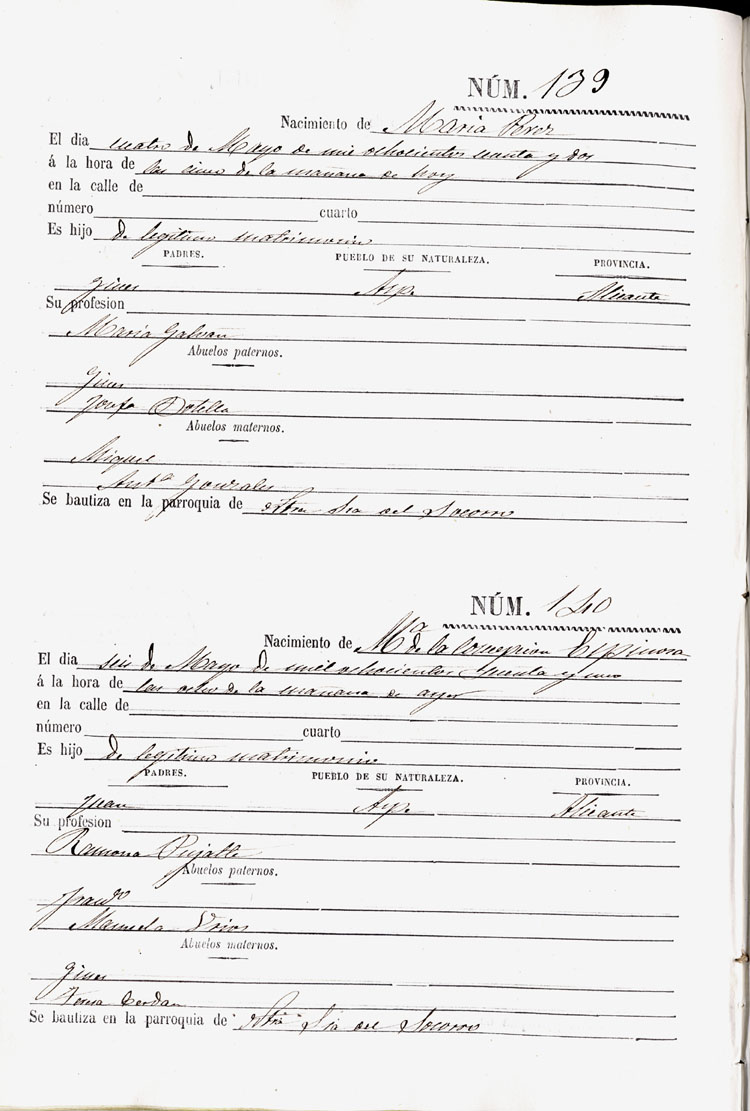 NÚM. 139
Nacimiento de Maria Perez
El dia cuatro de Mayo de mil ochocientos y dos
á la hora de las cinco de la mañana de hoy
en la calle de
número cuarto
Es hijo de legitimo matrimonio
PADRES. PUEBLO DE SU NATURALEZA. PROVINCIA.
Gines Asp. Alicante
Su profesion
Maria Galvan
Abuelos paternos.
Gines
Josefa Botella
Abuelos maternos.
Miguel
Antª Gonzales
Se bautiza en la parroquia de Ntra Sra del Socorro
NÚM. 140
Nacimiento de Mª de la Concepcion Espinosa
El dia seis de Mayo de mil ochocientos y uno
á la hora de las ocho de la mañana de ayer
en la calle de
número cuarto
Es hijo de legitimo matrimonio
PADRES. PUEBLO DE SU NATURALEZA. PROVINCIA.
Juan Asp. Alicante
Su profesion
Ramona Pujalte
Abuelos paternos.
Franco
Manuela Urios
Abuelos maternos.
Gines
Teresa Cerdan
Se bautiza en la parroquia de Ntra Sra del Socorro